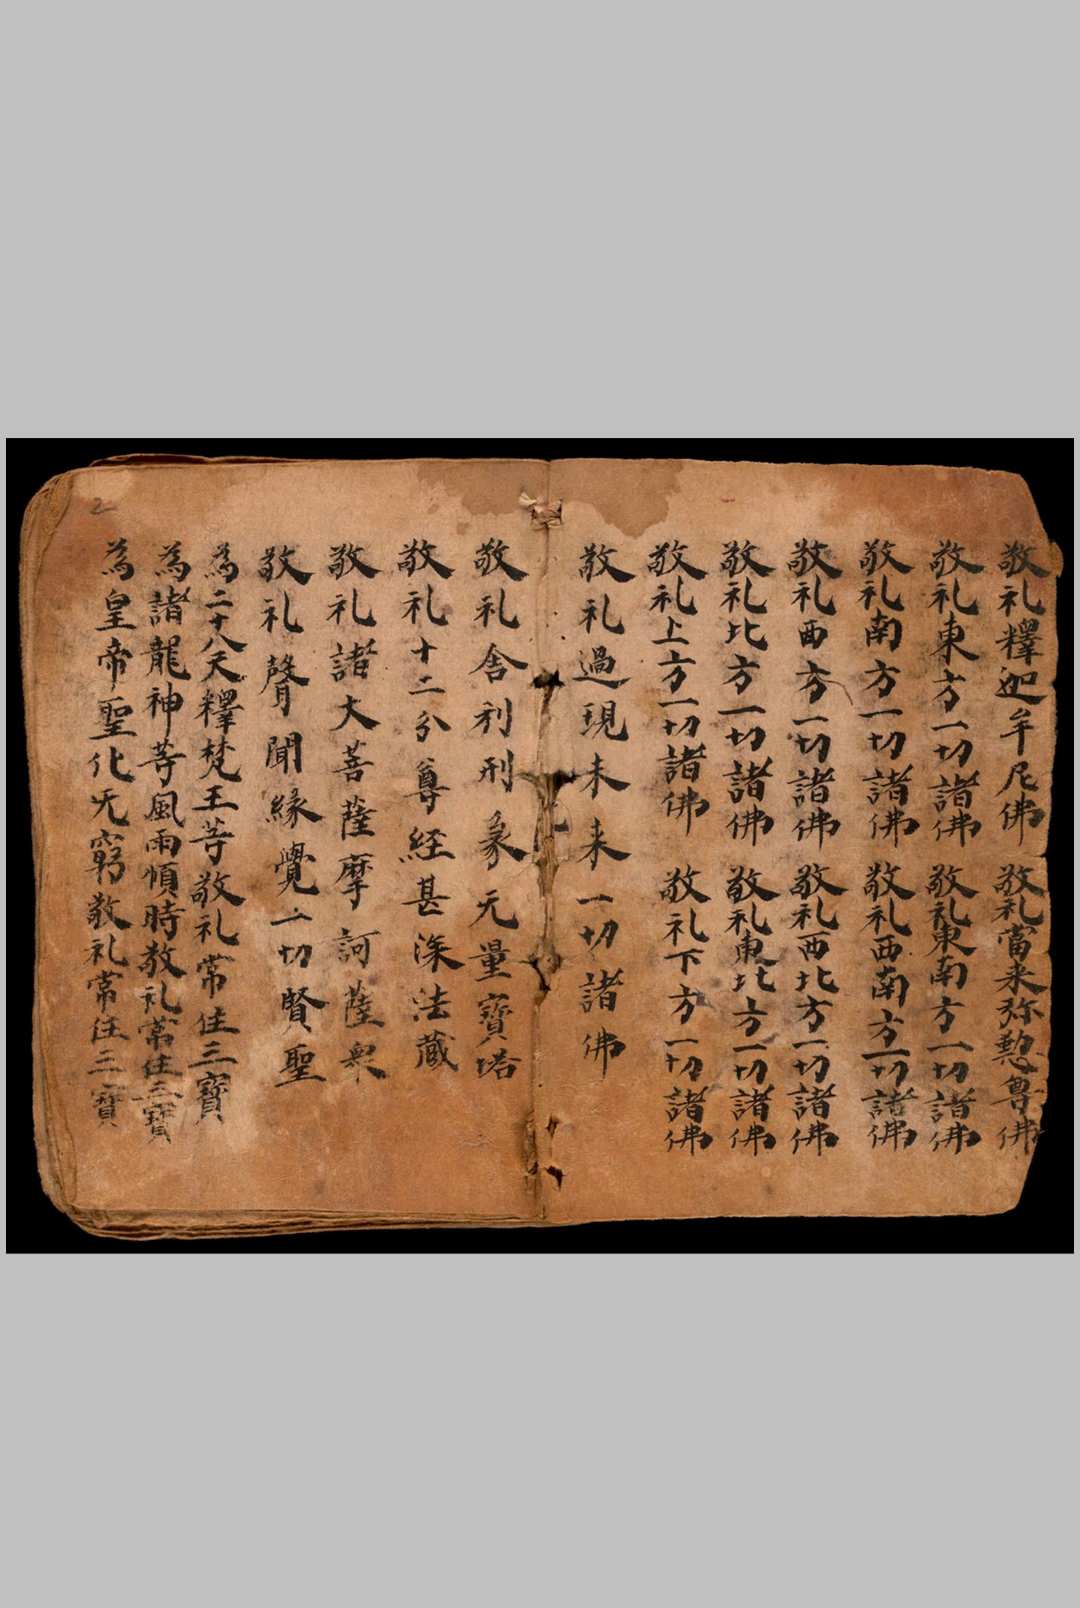 敬礼釋迦牟尼佛 敬礼當来弥勲尊佛
敬礼東方一切諸佛 敬礼東南方一切諸佛
敬礼南方一切諸佛 敬礼西南方一切諸佛
敬礼西方一切諸佛 敬礼西北方一切諸佛
敬礼北方一切諸佛 敬礼東北方一切諸佛
敬礼上方一切諸佛 敬礼下方一切諸佛
敬礼過現未来一切諸佛
敬礼舍利刑象无量寶塔
敬礼十二分尊経甚深法蔵
敬礼諸大菩薩摩訶薩衆
敬礼聲聞緣覺一切賢聖
為二十八天釋梵王等敬礼常住三寶
為諸龍神等風雨順時敬礼常住三寶
為皇帝聖化无窮敬礼常住三寶
2